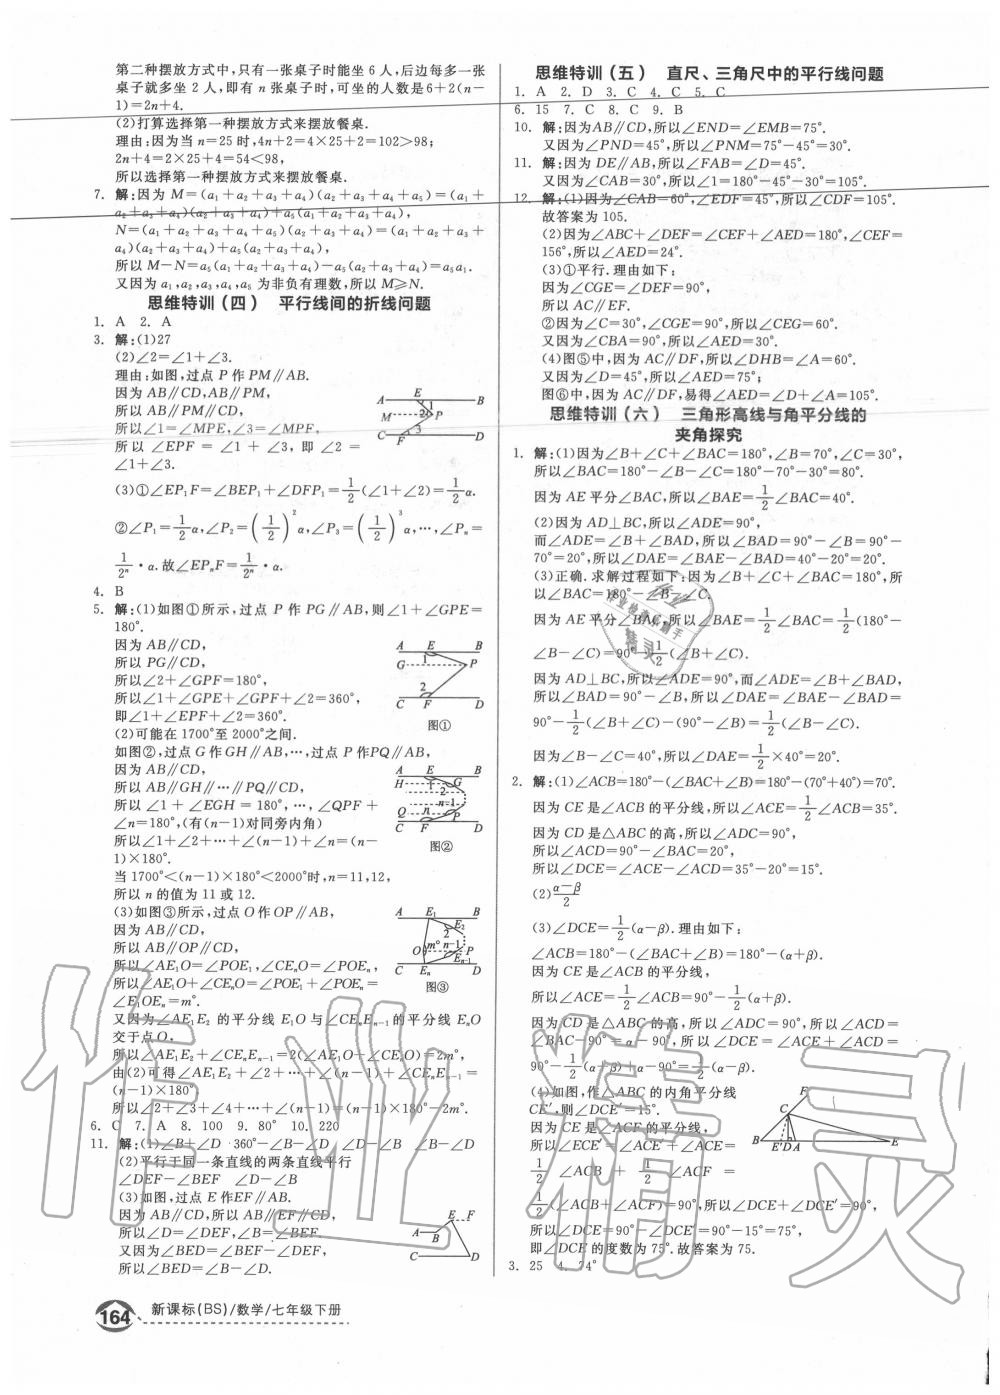 第二种摆放方式中,只有一张桌子时能坐 6 人,后边每多一张
桌子就多坐 2 人,即有 n 张桌子时,可坐的人数是6+2(n-
1)=2n+4.
(2)打算选择第一种摆放方式来摆放餐桌.
理由:因为当 n=25 时,4n+2=4×25+2=102>98;
2n+4=2×25+4=54<98,
所以选择第一种摆放方式来摆放餐桌.
7. 解:因为 M=(a₁+a₂+a₃+a₄)(a₂+a₃+a₄+a₅)=(a₁+
a₂+a₃+a₄)(a₂+a₃+a₄)+a₅(a₁+a₂+a₃+a₄),
N=(a₁+a₂+a₃+a₄+a₅)(a₂+a₃+a₄)=(a₁+a₂+a₃+
a₄)(a₂+a₃+a₄)+a₅(a₂+a₃+a₄),
所以 M-N=a₅(a₁+a₂+a₃+a₄)-a₅(a₂+a₃+a₄)=a₅a₁.
又因为 a₁,a₂,a₃,a₄,a₅ 为非负有理数,所以 M⩾N.
思维特训(四) 平行线间的折线问题
1. A 2. A
3. 解:(1)27
(2)∠2=∠1+∠3.
理由:如图,过点 P 作 PM∥AB.
因为 AB∥CD,AB∥PM,
所以 AB∥PM∥CD,
所以∠1=∠MPE,∠3=∠MPF,
所以 ∠EPF = ∠1 + ∠3, 即 ∠2 =
∠1+∠3.
(3)①∠EP₁F=∠BEP₁+∠DFP₁=1/2(∠1+∠2)=1/2α.
②∠P₁=1/2α,∠P₂=(1/2)²α,∠P₃=(1/2)³α,…,∠Pₙ=
1/2ⁿ·α.故∠EPₙF=1/2ⁿ·α.
4. B
5. 解:(1)如图①所示,过点 P 作 PG∥AB,则∠1+∠GPE=
180°.
因为 AB∥CD,
所以 PG∥CD,
所以∠2+∠GPF=180°,
所以∠1+∠GPE+∠GPF+∠2=360°,
即∠1+∠EPF+∠2=360°.
图①
(2)可能在 1700°至 2000°之间.
如图②,过点 G 作 GH∥AB,…,过点 P 作PQ∥AB,
因为 AB∥CD,
所以 AB∥GH∥…∥PQ∥CD,
所以∠1+∠EGH=180°,…,∠QPF+
∠n=180°,(有(n-1)对同旁内角)
所以∠1+∠2+…+∠(n-1)+∠n=(n-
1)×180°.
图②
当 1700°<(n-1)×180°<2000°时,n=11,12,
所以 n 的值为 11 或 12.
(3)如图③所示,过点 O 作 OP∥AB,
因为 AB∥CD,
所以 AB∥OP∥CD,
所以∠AE₁O=∠POE₁,∠CEₙO=∠POEₙ,
所以∠AE₁O+∠CEₙO=∠POE₁+∠POEₙ=
∠E₁OEₙ=m°.
图③
又因为∠AE₁E₂ 的平分线 E₁O 与∠CEₙEₙ₋₁的平分线 EₙO
交于点 O,
所以∠AE₁E₂+∠CEₙEₙ₋₁=2(∠AE₁O+∠CEₙO)=2m°,
由(2)可得∠AE₁E₂+∠2+…+∠(n-1)+∠CEₙEₙ₋₁=
(n-1)×180°,
所以∠2+∠3+∠4+…+∠(n-1)=(n-1)×180°-2m°.
6. C 7. A 8. 100 9. 80° 10. 220
11. 解:(1)∠B+∠D 360°-∠B-∠D ∠D-∠B ∠B-∠D
(2)平行于同一条直线的两条直线平行
∠DEF-∠BEF ∠D-∠B
(3)如图,过点 E 作EF∥AB.
因为 AB∥CD,所以 AB∥EF∥CD,
所以∠D=∠DEF,∠B=∠BEF.
又因为∠BED=∠BEF-∠DEF,
所以∠BED=∠B-∠D.
思维特训(五) 直尺、三角尺中的平行线问题
1. A 2. D 3. C 4. C 5. C
6. 15 7. C 8. C 9. B
10. 解:因为AB∥CD,所以∠END=∠EMB=75°.
又因为∠PND=45°,所以∠PNM=75°-45°=30°.
11. 解:因为 DE∥AB,所以∠FAB=∠D=45°.
又因为∠CAB=30°,所以∠1=180°-45°-30°=105°.
12. 解:(1)因为∠CAB=60°,∠EDF=45°,所以∠CDF=105°.
故答案为 105.
(2)因为∠ABC+∠DEF=∠CEF+∠AED=180°,∠CEF=
156°,所以∠AED=24°.
(3)①平行.理由如下:
因为∠CGE=∠DEF=90°,
所以 AC∥EF.
②因为∠C=30°,∠CGE=90°,所以∠CEG=60°.
又因为∠CBA=90°,所以∠AED=30°.
(4)图⑤中,因为 AC∥DF,所以∠DHB=∠A=60°.
又因为∠D=45°,所以∠AED=75°;
图⑥中,因为 AC∥DF,易得∠AED=∠D+∠A=105°.
思维特训(六) 三角形高线与角平分线的
夹角探究
1. 解:(1)因为∠B+∠C+∠BAC=180°,∠B=70°,∠C=30°,
所以∠BAC=180°-∠B-∠C=180°-70°-30°=80°.
因为 AE 平分∠BAC,所以∠BAE=1/2∠BAC=40°.
(2)因为 AD⊥BC,所以∠ADE=90°,
而∠ADE=∠B+∠BAD,所以∠BAD=90°-∠B=90°-
70°=20°,所以∠DAE=∠BAE-∠BAD=40°-20°=20°.
(3)正确.求解过程如下:因为∠B+∠C+∠BAC=180°,所
以∠BAC=180°-∠B-∠C.
因为 AE 平分∠BAC,所以∠BAE=1/2∠BAC=1/2(180°-
∠B-∠C)=90°-1/2(∠B+∠C).
因为 AD⊥BC,所以∠ADE=90°,而∠ADE=∠B+∠BAD,
所以∠BAD=90°-∠B,所以∠DAE=∠BAE-∠BAD=
90°-1/2(∠B+∠C)-(90°-∠B)=1/2(∠B-∠C).
因为∠B-∠C=40°,所以∠DAE=1/2×40°=20°.
2. 解:(1)∠ACB=180°-(∠BAC+∠B)=180°-(70°+40°)=70°.
因为 CE 是∠ACB 的平分线,所以∠ACE=1/2∠ACB=35°.
因为 CD 是△ABC 的高,所以∠ADC=90°,
所以∠ACD=90°-∠BAC=20°,
所以∠DCE=∠ACE-∠ACD=35°-20°=15°.
(2)α-β/2
(3)∠DCE=1/2(α-β).理由如下:
∠ACB=180°-(∠BAC+∠B)=180°-(α+β).
因为 CE 是∠ACB 的平分线,
所以∠ACE=1/2∠ACB=90°-1/2(α+β).
因为 CD 是△ABC 的高,所以∠ADC=90°,所以∠ACD=
∠BAC-90°=α-90°,所以∠DCE=∠ACE+∠ACD=
90°-1/2(α+β)+α-90°=1/2(α-β).
(4)如图,作△ABC 的内角平分线
CE′,则∠DCE′=15°.
因为 CE 是∠ACF 的平分线,
所以∠ECE′=∠ACE+∠ACE′=
1/2∠ACB+1/2∠ACF=
1/2(∠ACB+∠ACF)=90°,所以∠DCE+∠DCE′=90°,
所以∠DCE=90°-∠DCE′=90°-15°=75°.
即∠DCE 的度数为 75°.故答案为 75.
3. 25 4. 24°
164 新课标(BS)/数学/七年级下册
作业精灵